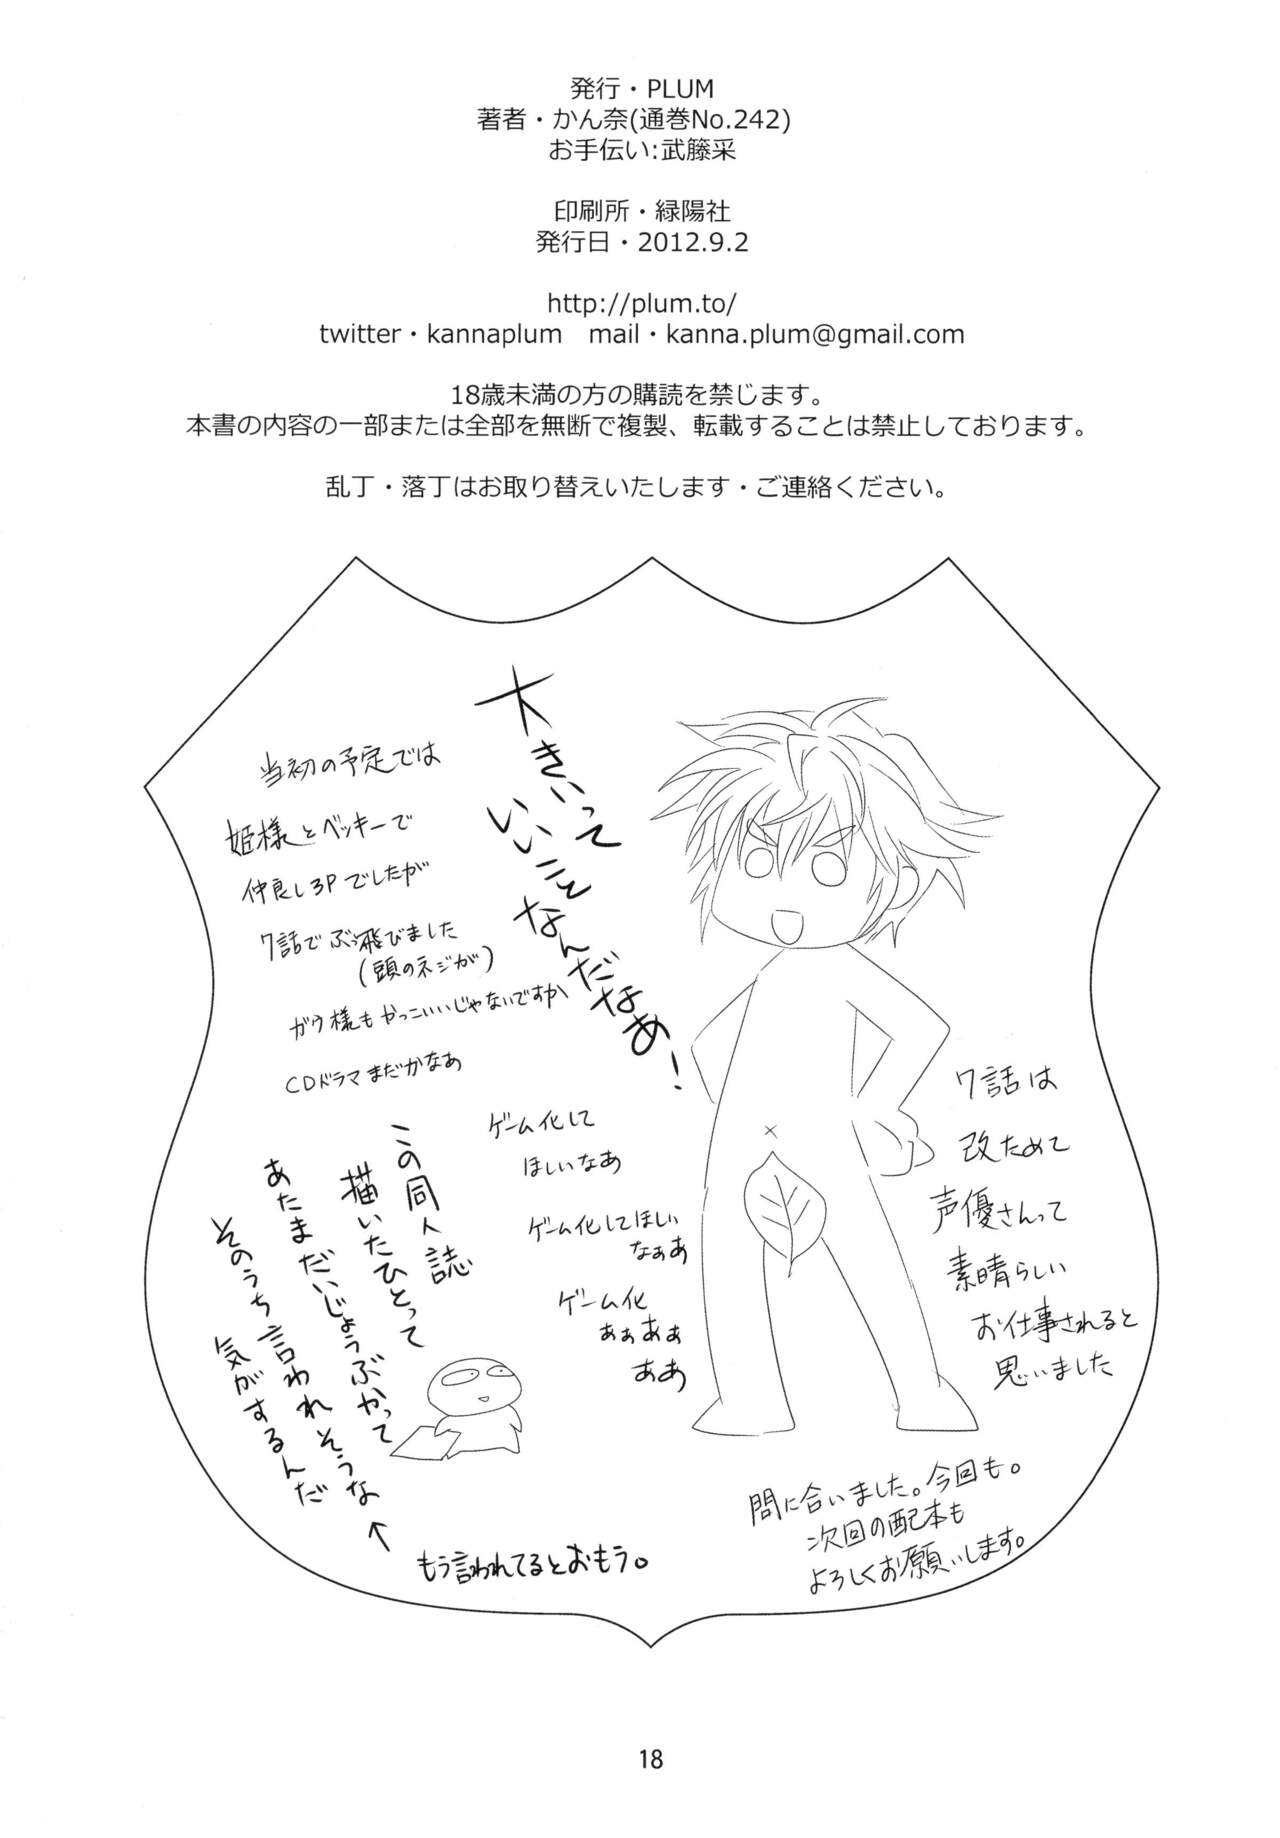 発行・PLUM
著者・かん奈(通巻No.242)
お手伝い:武藤采
印刷所・緑陽社
発行日・2012.9.2
http://plum.to/
twitter・kannaplum　mail・kanna.plum@gmail.com
18歳未満の方の購読を禁じます。
本書の内容の一部または全部を無断で複製、転載することは禁止しております。
乱丁・落丁はお取り替えいたします・ご連絡ください。
大きいって
いいことなんだなあ!
当初の予定では
姫様とベッキーで
仲良し3Pでしたが
7話でぶっ飛びました
(頭のネジが)
ガウ様もかっこいいじゃないですか
CDドラマまだかなあ
ゲーム化して
ほしいなあ
ゲーム化してほしい
なぁあ
ゲーム化
ぁぁあぁ
ああ
7話は
改ためて
声優さんって
素晴らしい
お仕事されると
思いました
この同人誌
描いたひとって
あたまだいじょうぶかって
そのうち言われそうな
気がするんだ
←
もう言われてるとおもう。
間に合いました。今回も。
次回の配本も
よろしくお願いします。
18